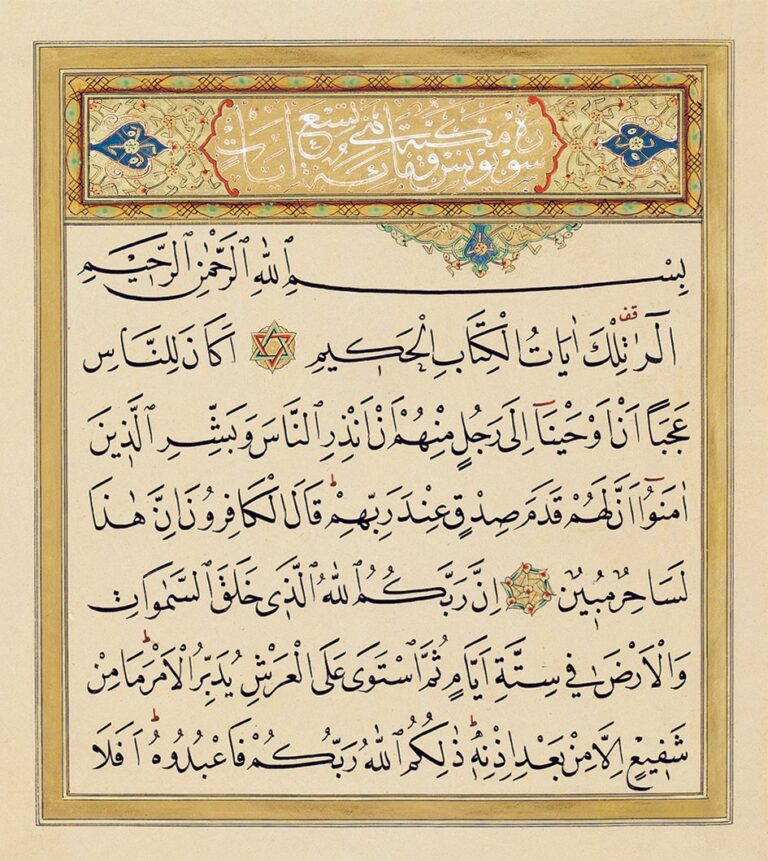 سورة يونس مكية وهي مائة وتسع ايات
بِسْمِ اللهِ الرَّحْمٰنِ الرَّحِيمِ
الٓرٰ قف تِلْكَ اٰيَاتُ الْكِتَابِ الْحَكِيمِ اَكَانَ لِلنَّاسِ
عَجَبًا اَنْ اَوْحَيْنَٓا اِلٰى رَجُلٍ مِنْهُمْ اَنْ اَنْذِرِ النَّاسَ وَبَشِّرِ الَّذِينَ
اٰمَنُٓوا اَنَّ لَهُمْ قَدَمَ صِدْقٍ عِنْدَ رَبِّهِمْ ط قَالَ الْكَافِرُونَ اِنَّ هٰذَا
لَسَاحِرٌ مُبِينٌ اِنَّ رَبَّكُمُ اللهُ الَّذِي خَلَقَ السَّمٰوَاتِ
وَالْاَرْضَ فِي سِتَّةِ اَيَّامٍ ثُمَّ اسْتَوٰى عَلَى الْعَرْشِ يُدَبِّرُ الْاَمْرَ ط مَا مِنْ
شَفِيعٍ اِلَّا مِنْ بَعْدِ اِذْنِهِ ط ذٰلِكُمُ اللهُ رَبُّكُمْ فَاعْبُدُوهُ ط اَفَلَا